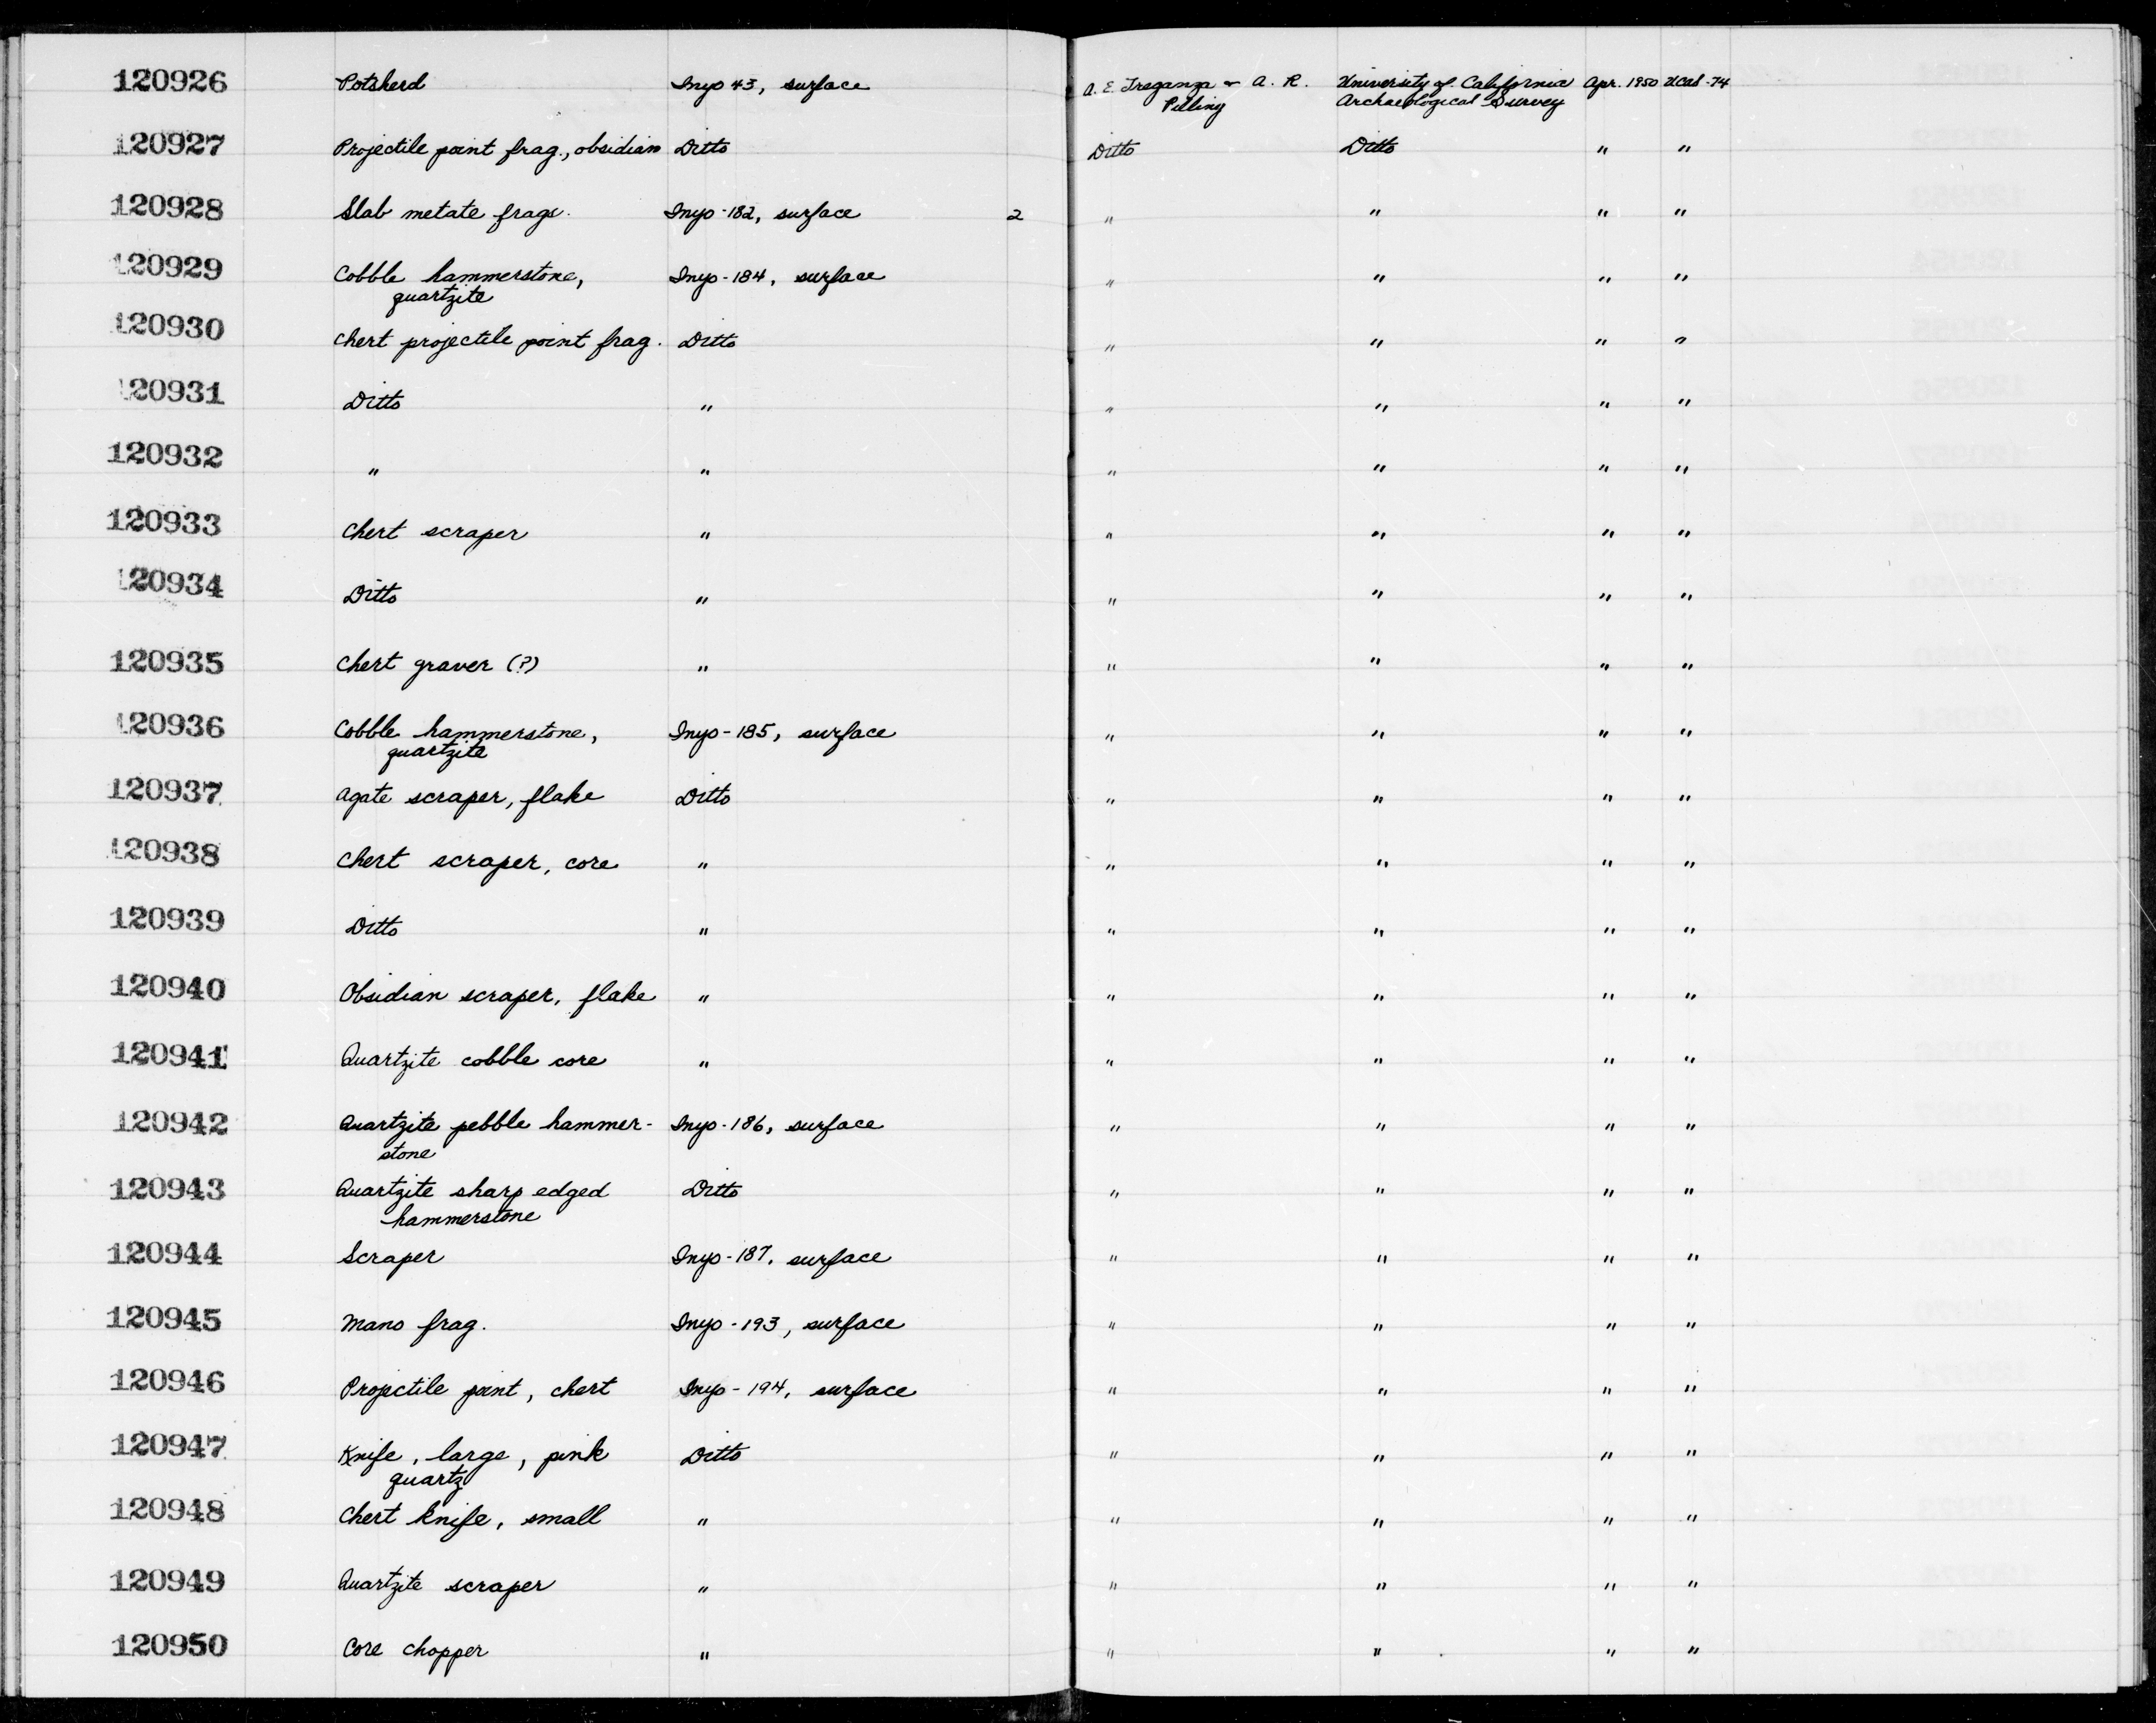 120926 Potsherd Inyo 43, surface A. E. Treganza & A. R. University of California Apr. 1950 UCAS-74
Pilling Archaeological Survey
120927 Projectile point frag., obsidian Ditto Ditto Ditto " "
120928 Slab metate frags. Inyo-182, surface 2 " " " "
120929 Cobble hammerstone, Inyo-184, surface " " " "
quartzite
120930 Chert projectile point frag. Ditto " " " "
120931 Ditto " " " " "
120932 " " " " " "
120933 Chert scraper " " " " "
120934 Ditto " " " " "
120935 Chert graver (?) " " " " "
120936 Cobble hammerstone, Inyo-185, surface " " " "
quartzite
120937 Agate scraper, flake Ditto " " " "
120938 Chert scraper, core " " " " "
120939 Ditto " " " " "
120940 Obsidian scraper, flake " " " " "
120941 Quartzite cobble core " " " " "
120942 Quartzite pebble hammer- Inyo-186, surface " " " "
stone
120943 Quartzite sharp edged Ditto " " " "
hammerstone
120944 Scraper Inyo-187, surface " " " "
120945 Mano frag. Inyo-193, surface " " " "
120946 Projectile point, chert Inyo-194, surface " " " "
120947 Knife, large, pink Ditto " " " "
quartz
120948 Chert knife, small " " " " "
120949 Quartzite scraper " " " " "
120950 Core chopper " " " " "